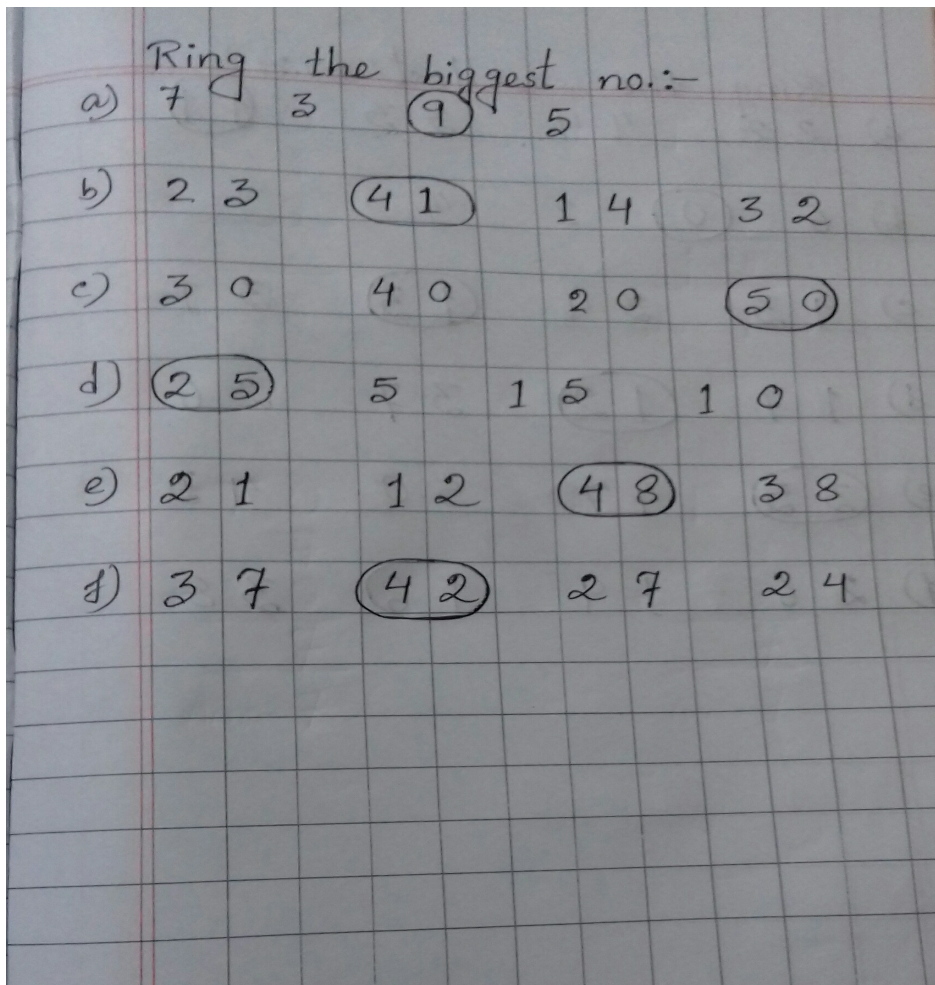 Ring the biggest no.:-
a) 7 3 9 5
b) 23 41 14 32
c) 30 40 20 50
d) 25 5 15 10
e) 21 12 48 38
f) 37 42 27 24